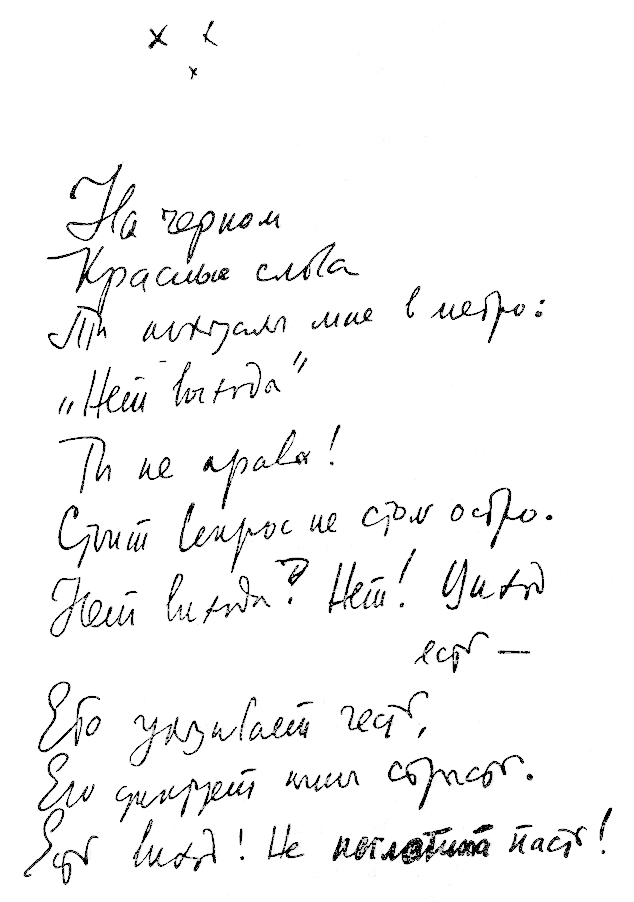 х х
х
На черном
Красные слова
Ты показала мне в метро:
„Нет выхода"
Ты не права!
Стоит вопрос не столь остро.
Нет выхода? Нет! Выход
есть —
Его указывает честь,
Его диктует нам страсть.
Есть выход! Не поглотит пасть!